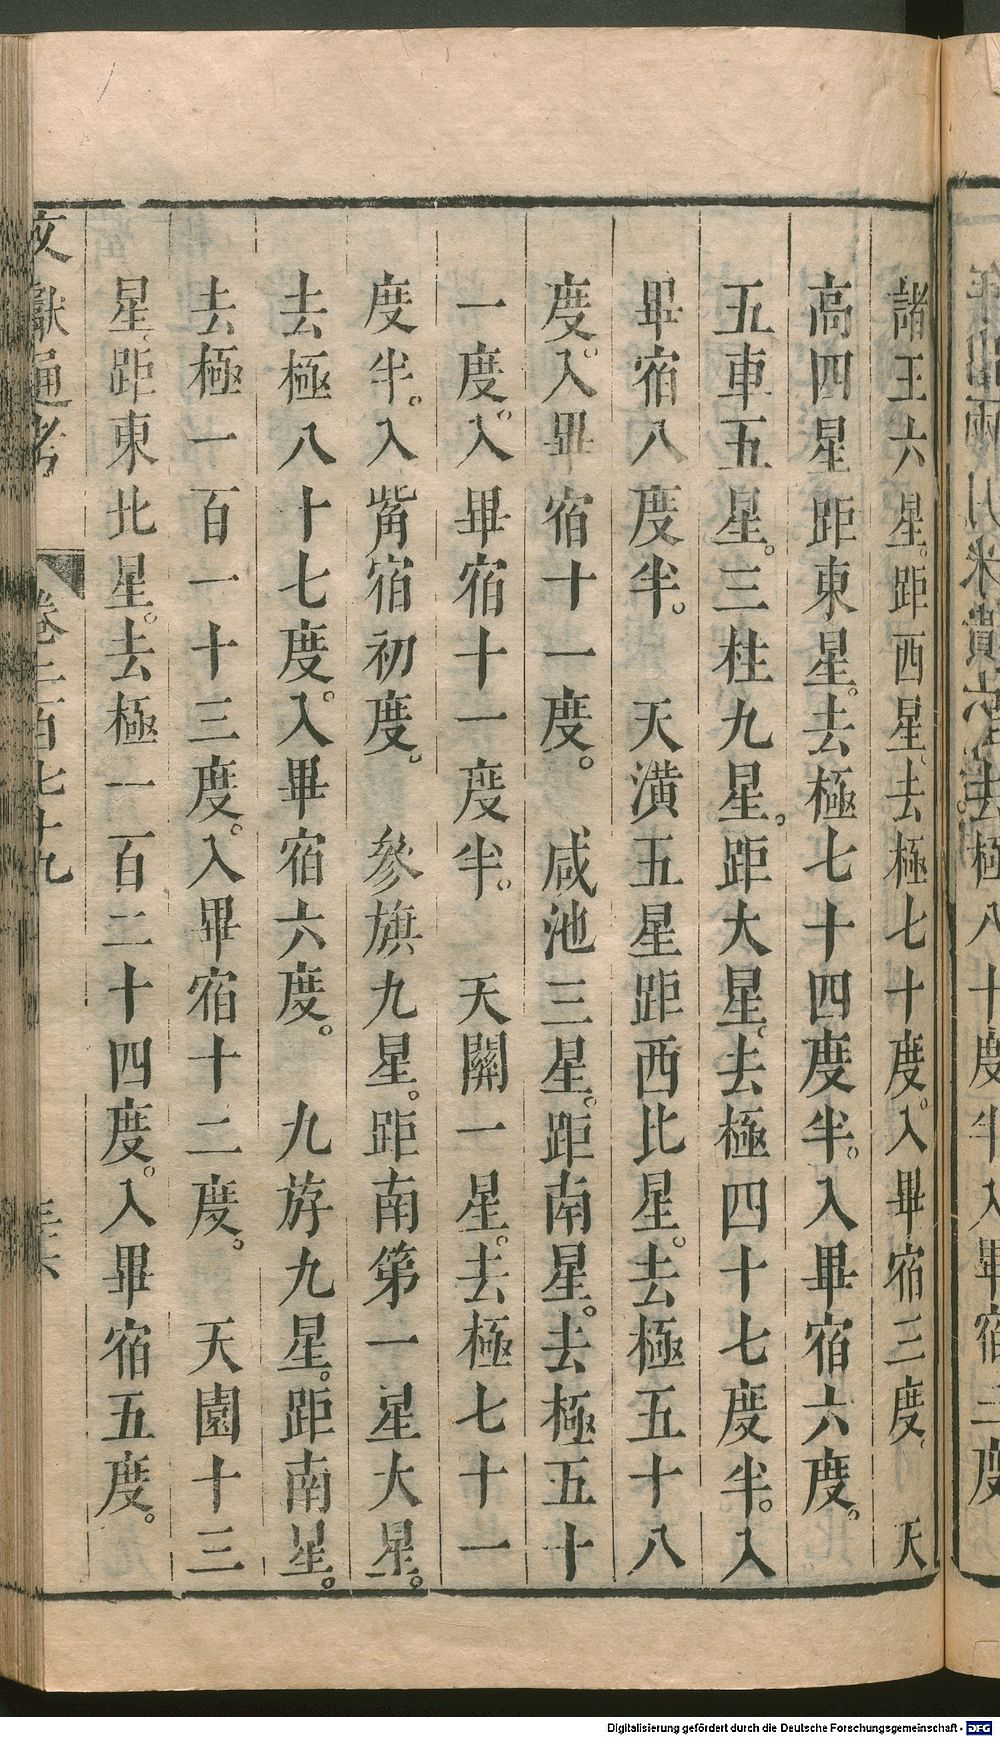 去極八十度半入畢宿三度
諸王六星。距西星、去極七十度。入畢宿三度。　天
高四星距東星。去極七十四度半。入畢宿六度。
五車五星。三柱九星。距大星。去極四十七度半。入
畢宿八度半。　天潢五星距西北星。去極五十八
度。入畢宿十一度。　咸池三星。距南星。去極五十
一度。入畢宿十一度半。　天關一星。去極七十一
度半。入觜宿初度。　參旗九星。距南第一星大星。
去極八十七度。入畢宿六度。　九斿九星。距南星。
去極一百一十三度。入畢宿十二度。　天園十三
星、距東北星。去極一百二十四度。入畢宿五度。
文獻通考　卷二百七十九
Digitalisierung gefördert durch die Deutsche Forschungsgemeinschaft - DFG